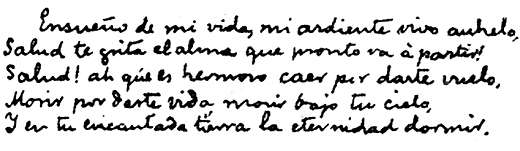 Ensueño de mi vida, mi ardiente vivo anhelo,
Salud te grita el alma que pronto va á partir!
Salud! ah que es hermoso caer por darte vuelo,
Morir por darte vida, morir bajo tu cielo,
Y en tu encantada tierra la eternidad dormir.